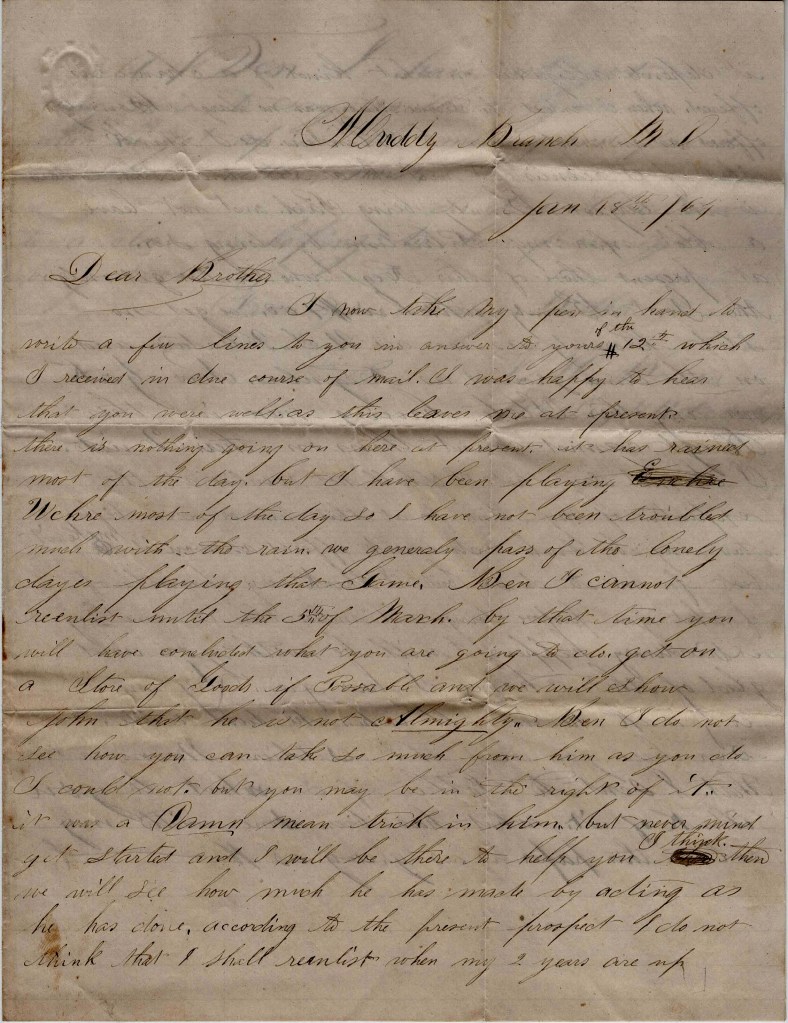 Muddy Branch M D
Jan 18th /64
Dear Brother
I now take my pen in hand to
write a few lines to you in answer to yours of the 12th which
I received in due course of mail. I was happy to hear
that you were well. as this leaves me at present.
there is nothing going on here at present. it has rained
most of the day. but I have been playing
Uchre most of the day so I have not been troubled
much with the rain. we generaly pass of the lonely
dayes playing that Game. Ben I cannot
reenlist until the 5th of March. by that time you
will have concluded what you are going to do. get on
a Store of Goods if Possable and we will show
John that he is not Almighty. Ben I do not
see how you can take so much from him as you do
I could not. but you may be in the right of it.
it was a Damn mean trick in him. but never mind
get started and I will be there to help you I think. then
we will see how much he has made by acting as
he has done. according to the present prospect I do not
think that I shall reenlist when my 2 years are up